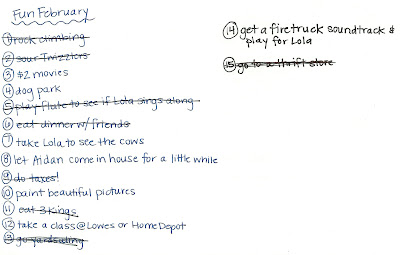 Fun February
1 rock climbing
2 sour Twizzlers
3 $2 movies
4 dog park
5 play flute to see if Lola sings along
6 eat dinner w/ friends
7 take Lola to see the cows
8 let Aidan come in house for a little while
9 do taxes!
10 paint beautiful pictures
11 eat 3 Kings
12 take a class @ Lowes or Home Depot
13 go yardsaling
14 get a firetruck soundtrack &
play for Lola
15 go to a thrift store